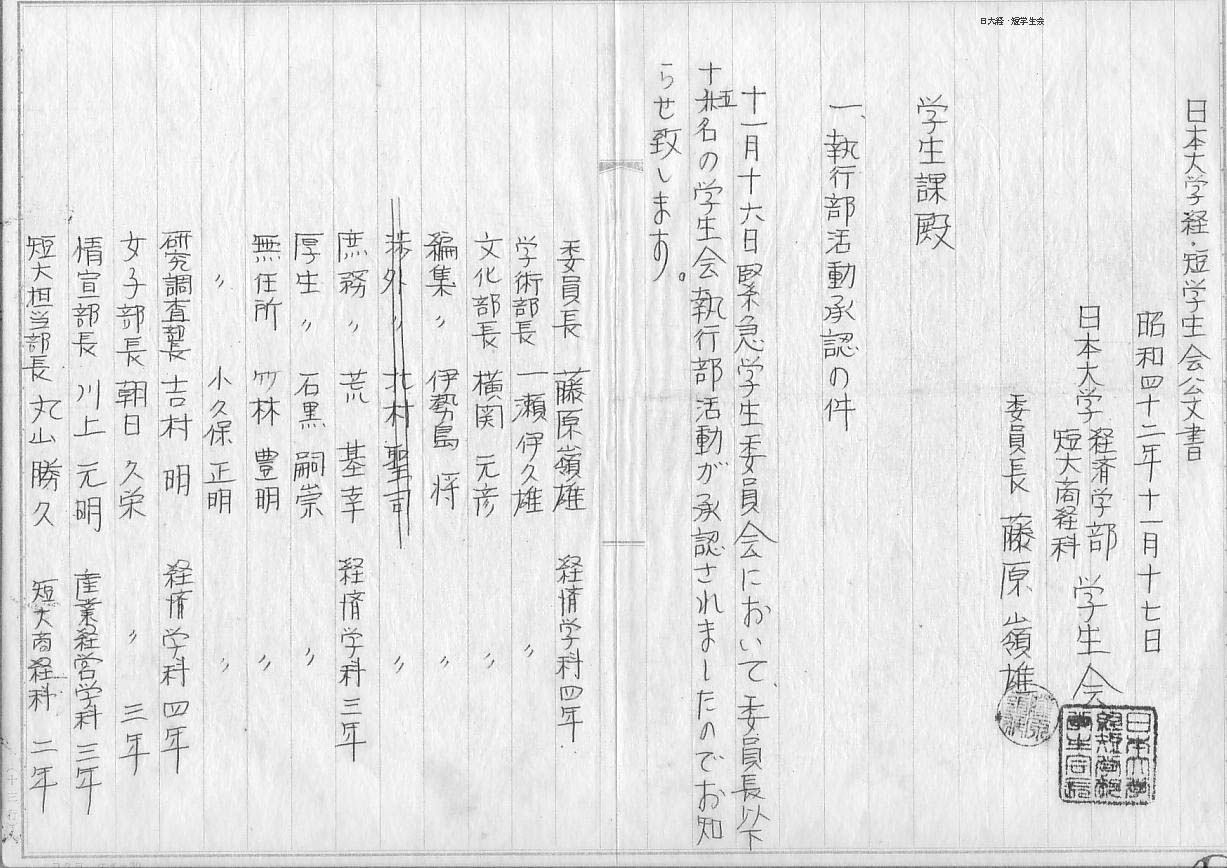 日大経・短学生会
日本大学経・短学生会公文書
昭和四十二年十一月十七日
日本大学 経済学部 学生会
短大商経科
委員長 藤原嶺雄
学生課殿
一、執行部活動承認の件
十一月十六日緊急学生委員会において、委員長以下
十五名の学生会執行部活動が承認されましたのでお知
らせ致します。
委員長 藤原嶺雄 経済学科四年
学術部長 一瀬伊久雄 〃
文化部長 横関元彦 〃
編集〃 伊勢島将 〃
渉外〃 北村聖司 〃
庶務〃 荒基幸 経済学科三年
厚生〃 石黒嗣崇 〃
無任所 竹林豊明 〃
〃 小久保正明 〃
研究調査部長 吉村明 経済学科四年
女子部長 朝日久栄 〃 三年
情宣部長 川上元明 産業経営学科三年
短大担当部長 丸山勝久 短大商経科二年